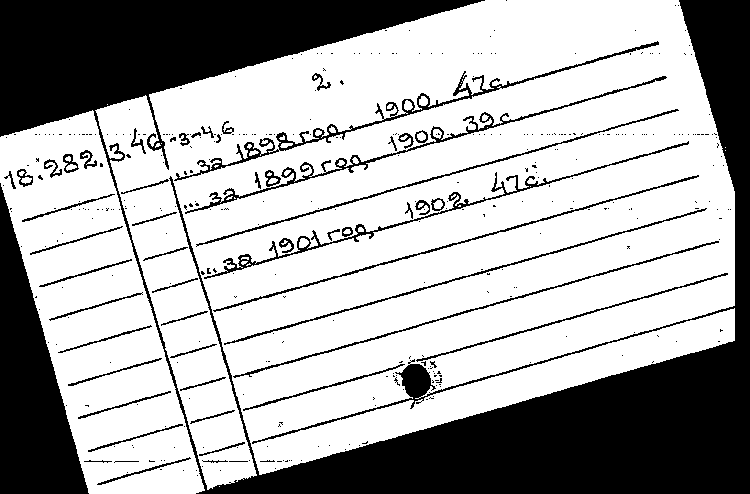 2.
18.282.3.46-3-4,6
...за 1898 год. 1900. 47с.
...за 1899 год 1900. 39с
...за 1901 год. 1902. 47с.